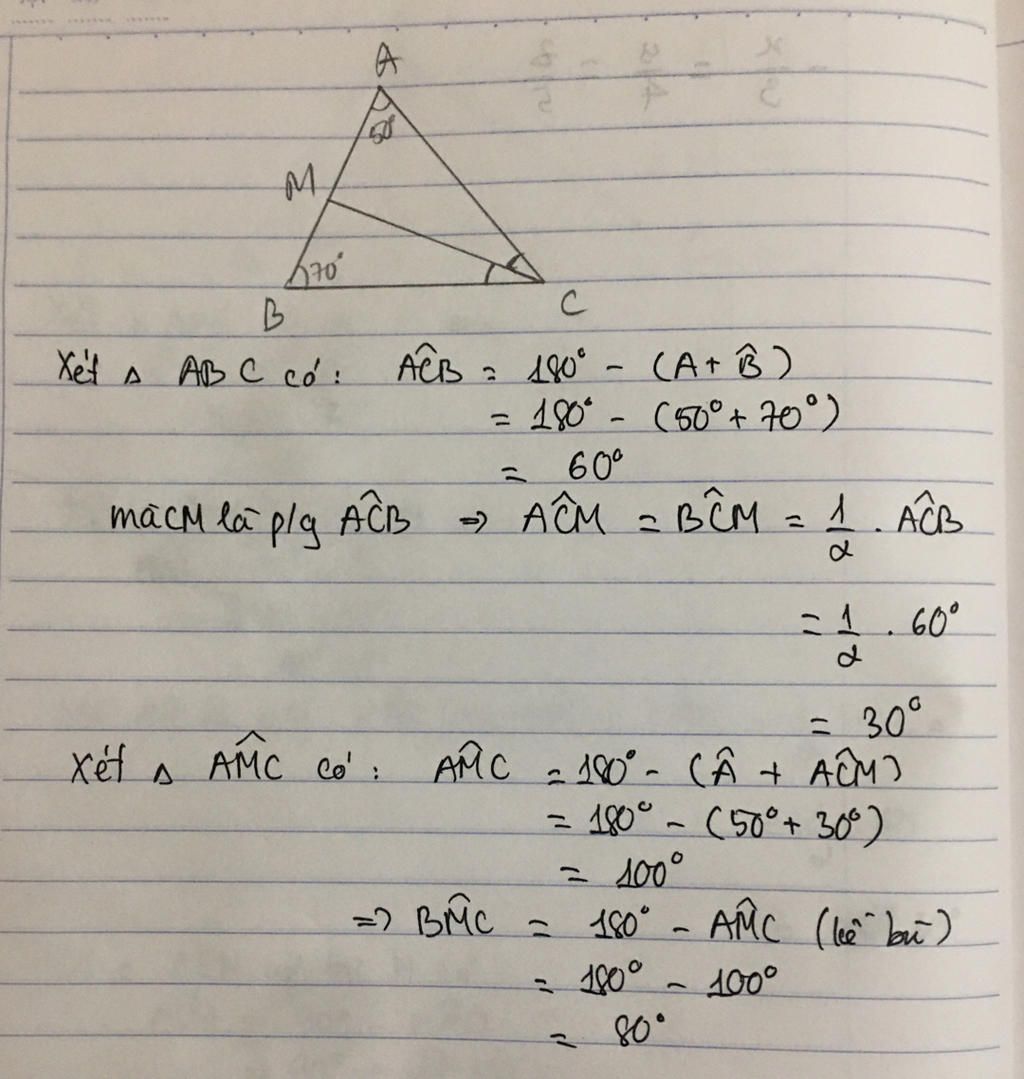 A
50°
M
70°
B
C
Xét Δ ABC có: AĈB = 180° - (A + B̂)
= 180° - (50° + 70°)
= 60°
mà CM là p/g AĈB => AĈM = BĈM = 1/2 . AĈB
= 1/2 . 60°
= 30°
Xét Δ AM̂C có: AM̂C = 180° - (Â + AĈM)
= 180° - (50° + 30°)
= 100°
=> BM̂C = 180° - AM̂C (kề bù)
= 180° - 100°
= 80°